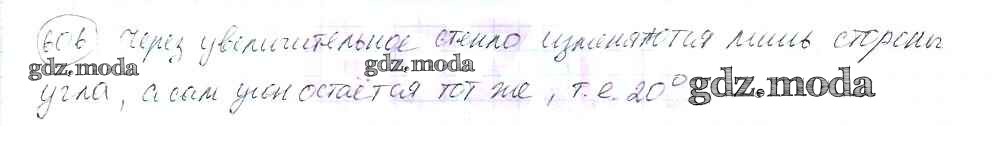 606 Через увеличительное стекло изменяются лишь стороны
gdz.moda gdz.moda
угла, а сам угол остаётся тот же, т.е. 20° gdz.moda